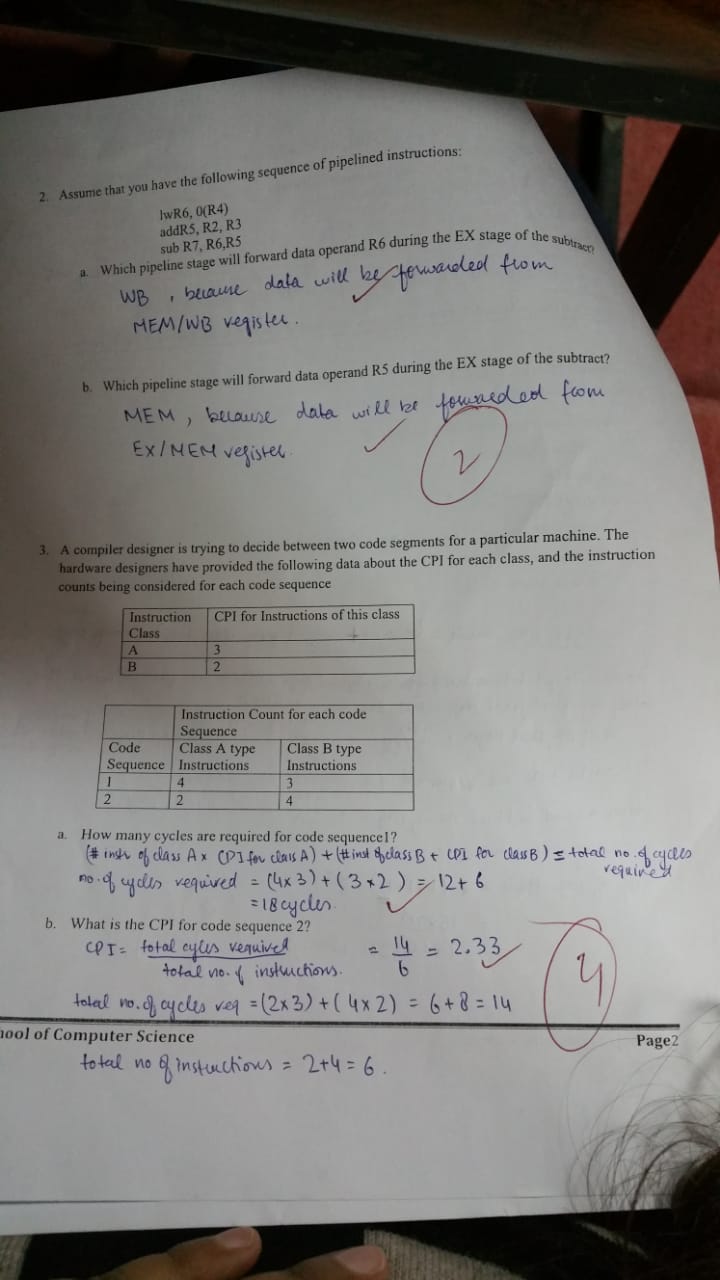 2. Assume that you have the following sequence of pipelined instructions:
lwR6, 0(R4)
addR5, R2, R3
sub R7, R6,R5
a. Which pipeline stage will forward data operand R6 during the EX stage of the subtract?
WB , because data will be forwarded from
MEM/WB register.
b. Which pipeline stage will forward data operand R5 during the EX stage of the subtract?
MEM, because data will be forwarded from
EX/MEM register.
2
3. A compiler designer is trying to decide between two code segments for a particular machine. The
hardware designers have provided the following data about the CPI for each class, and the instruction
counts being considered for each code sequence
Instruction Class | CPI for Instructions of this class
A | 3
B | 2
Instruction Count for each code Sequence
Code Sequence | Class A type Instructions | Class B type Instructions
1 | 4 | 3
2 | 2 | 4
a. How many cycles are required for code sequence1?
(# instr of class A x CPI for class A) + (# inst of class B + CPI for class B) = total no. of cycles required
no. of cycles required = (4x3) + (3x2) = 12+6
= 18 cycles.
b. What is the CPI for code sequence 2?
CPI = total cyles required / total no. of instructions. = 14/6 = 2.33
4
total no. of cycles req = (2x3) + (4x2) = 6+8 = 14
hool of Computer Science Page2
total no of instructions = 2+4 = 6.